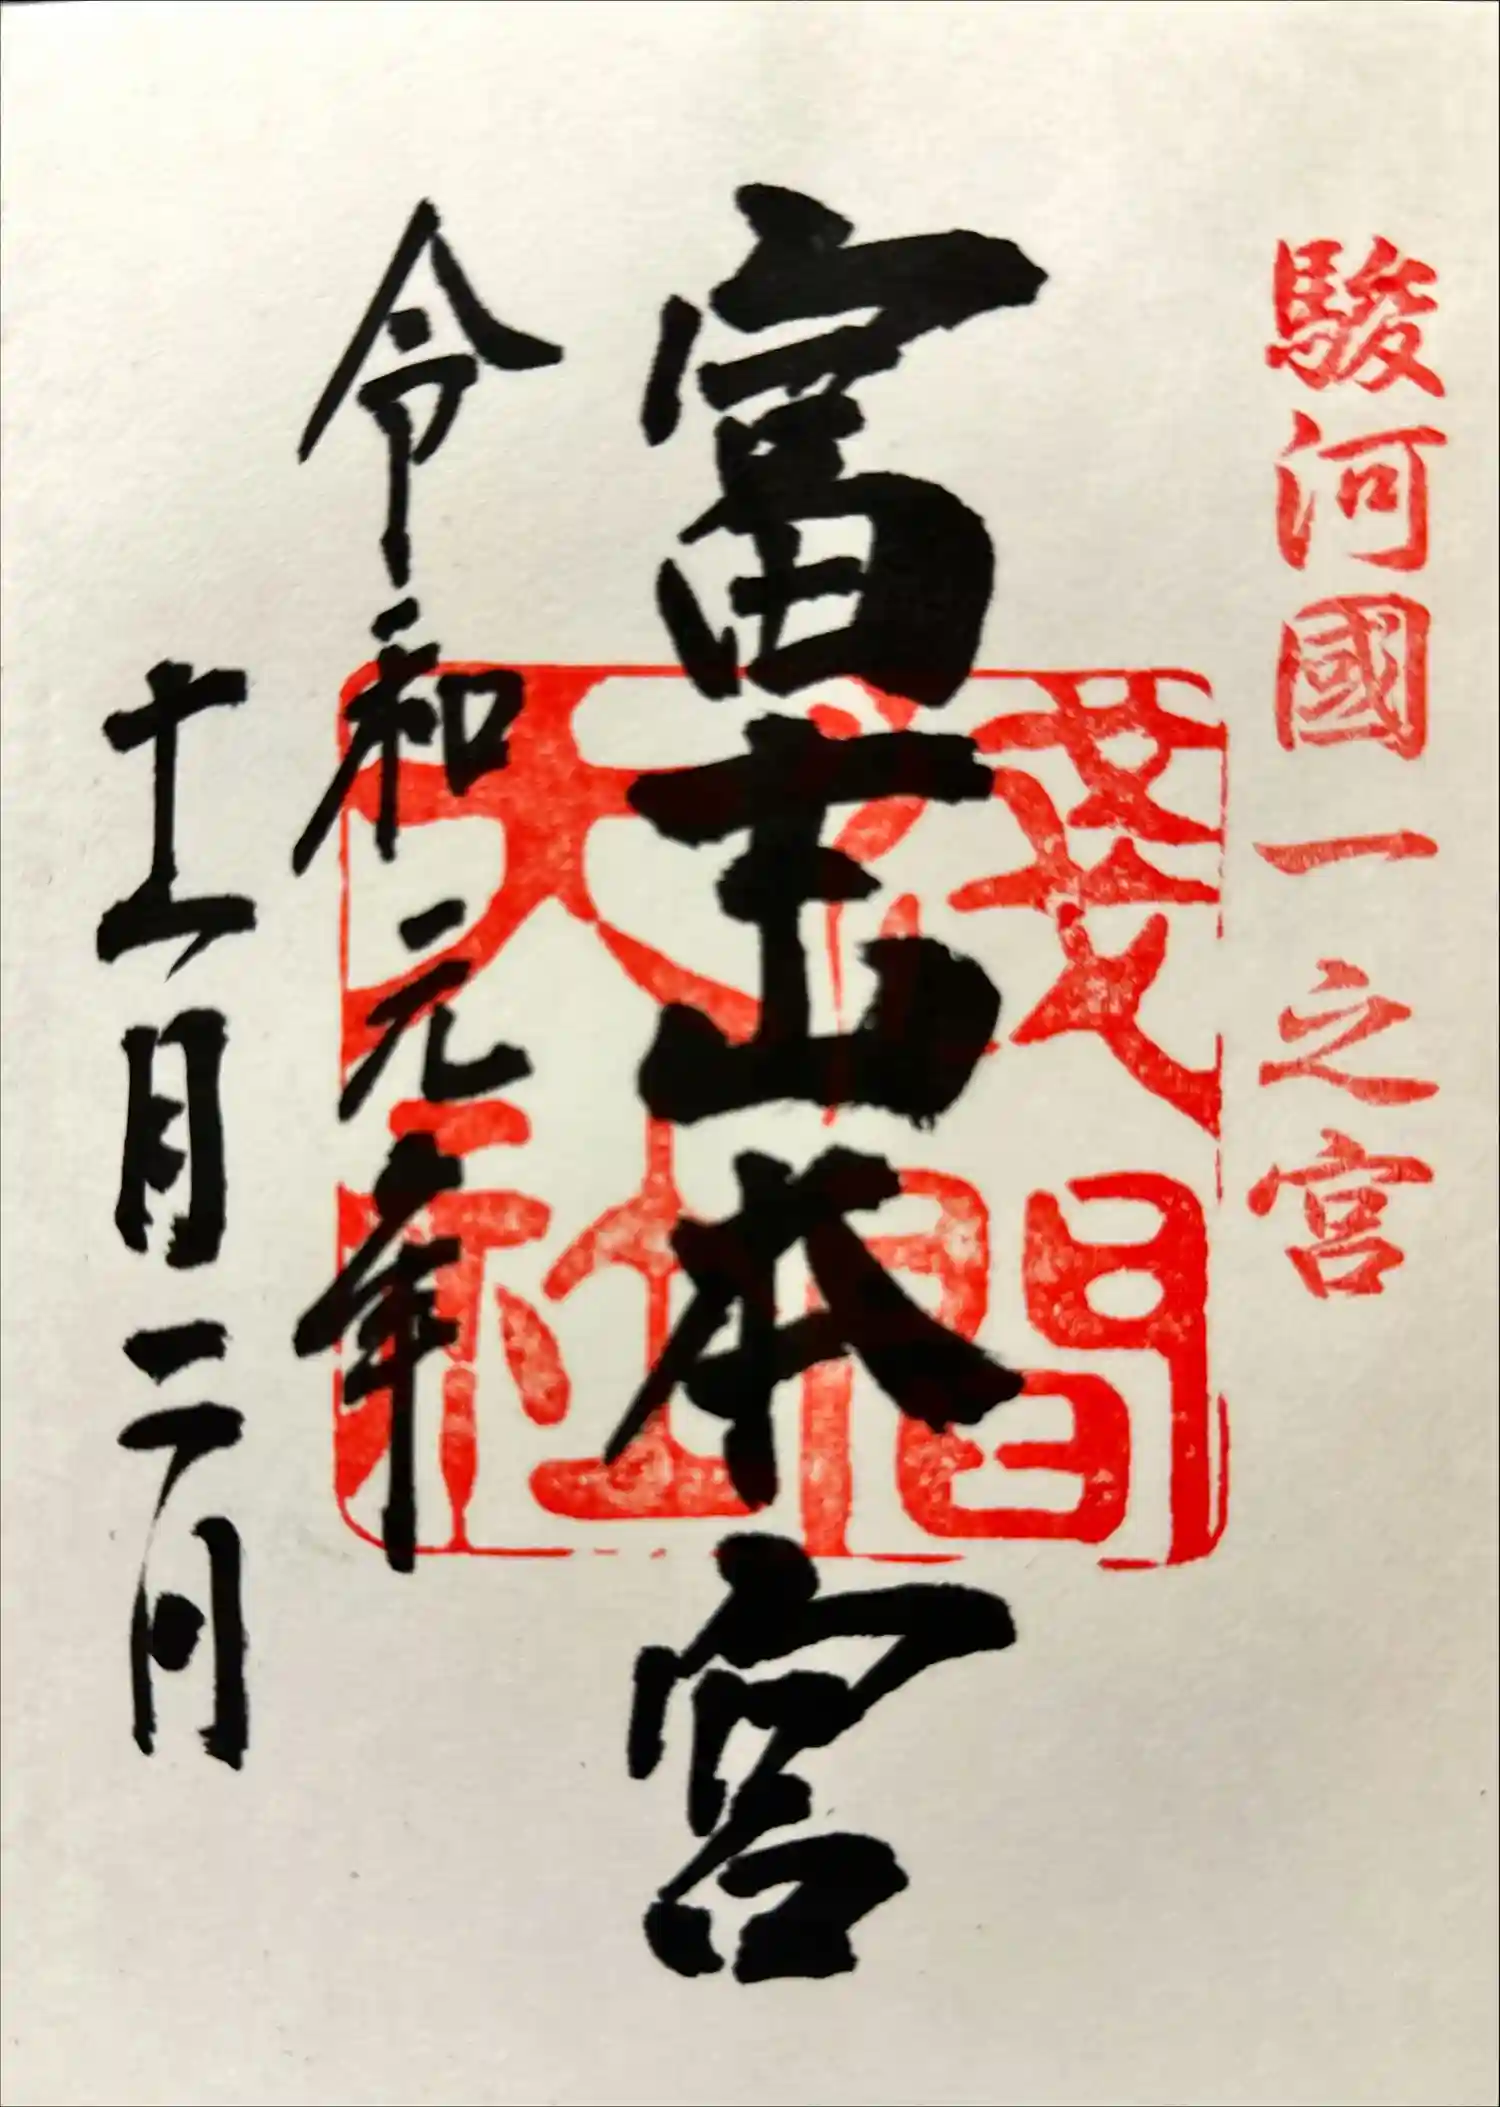 駿河國一之宮
富士山本宮
淺間
大社
令和元年
十一月二日